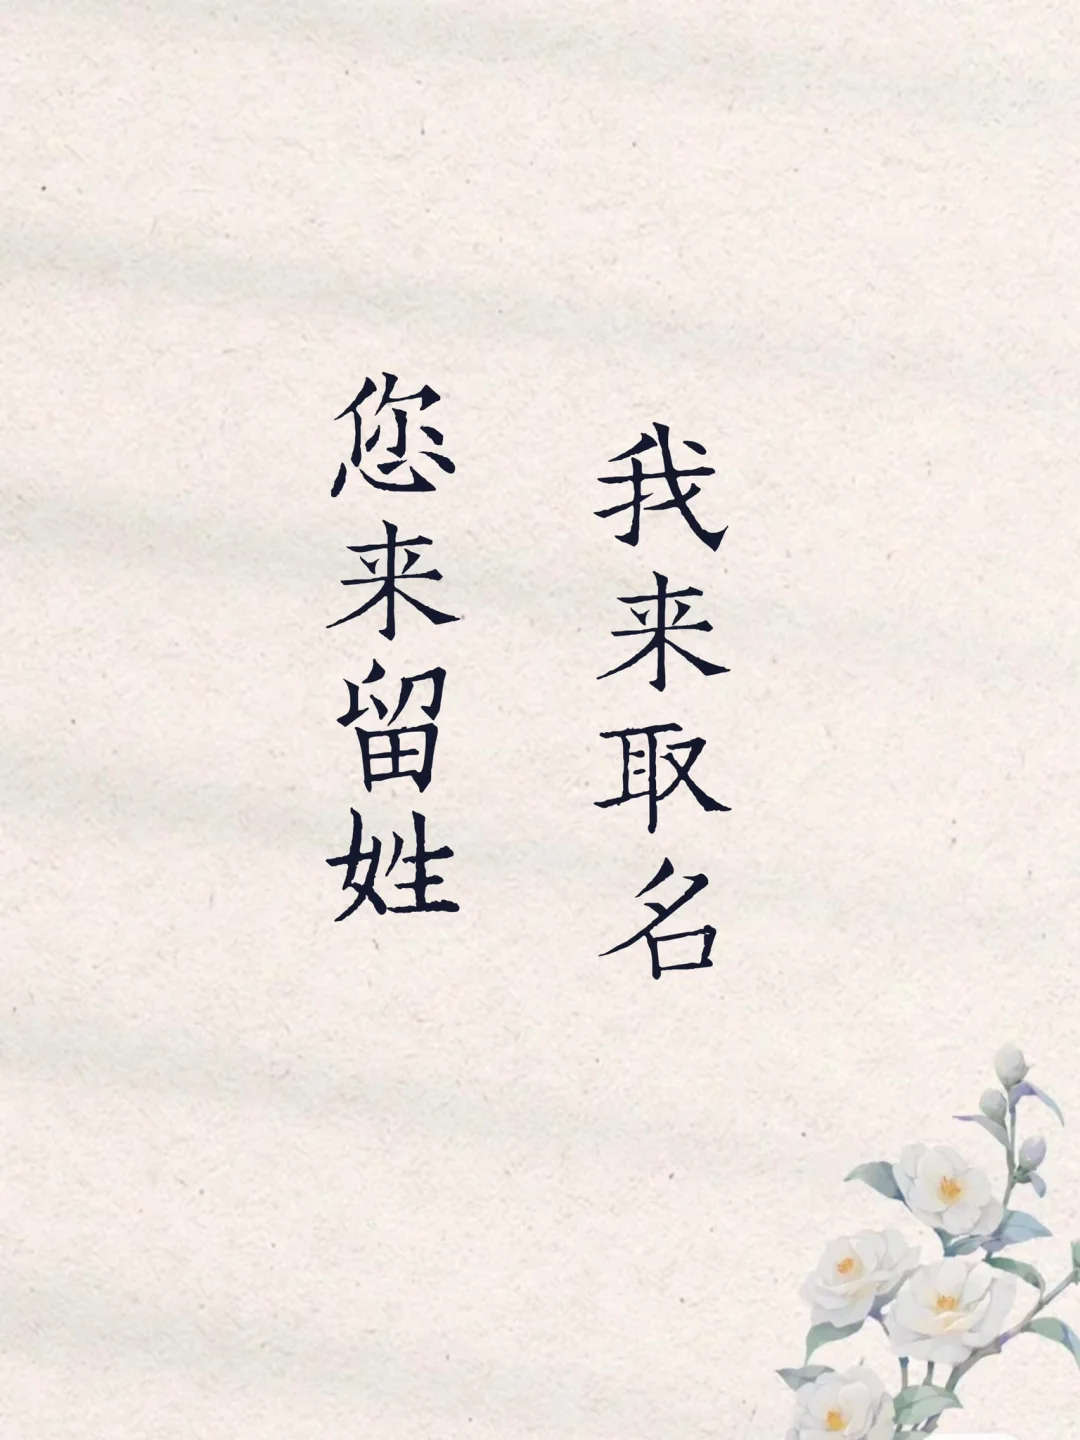 您来留姓
我来取名